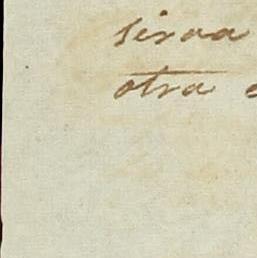 sirva
otra